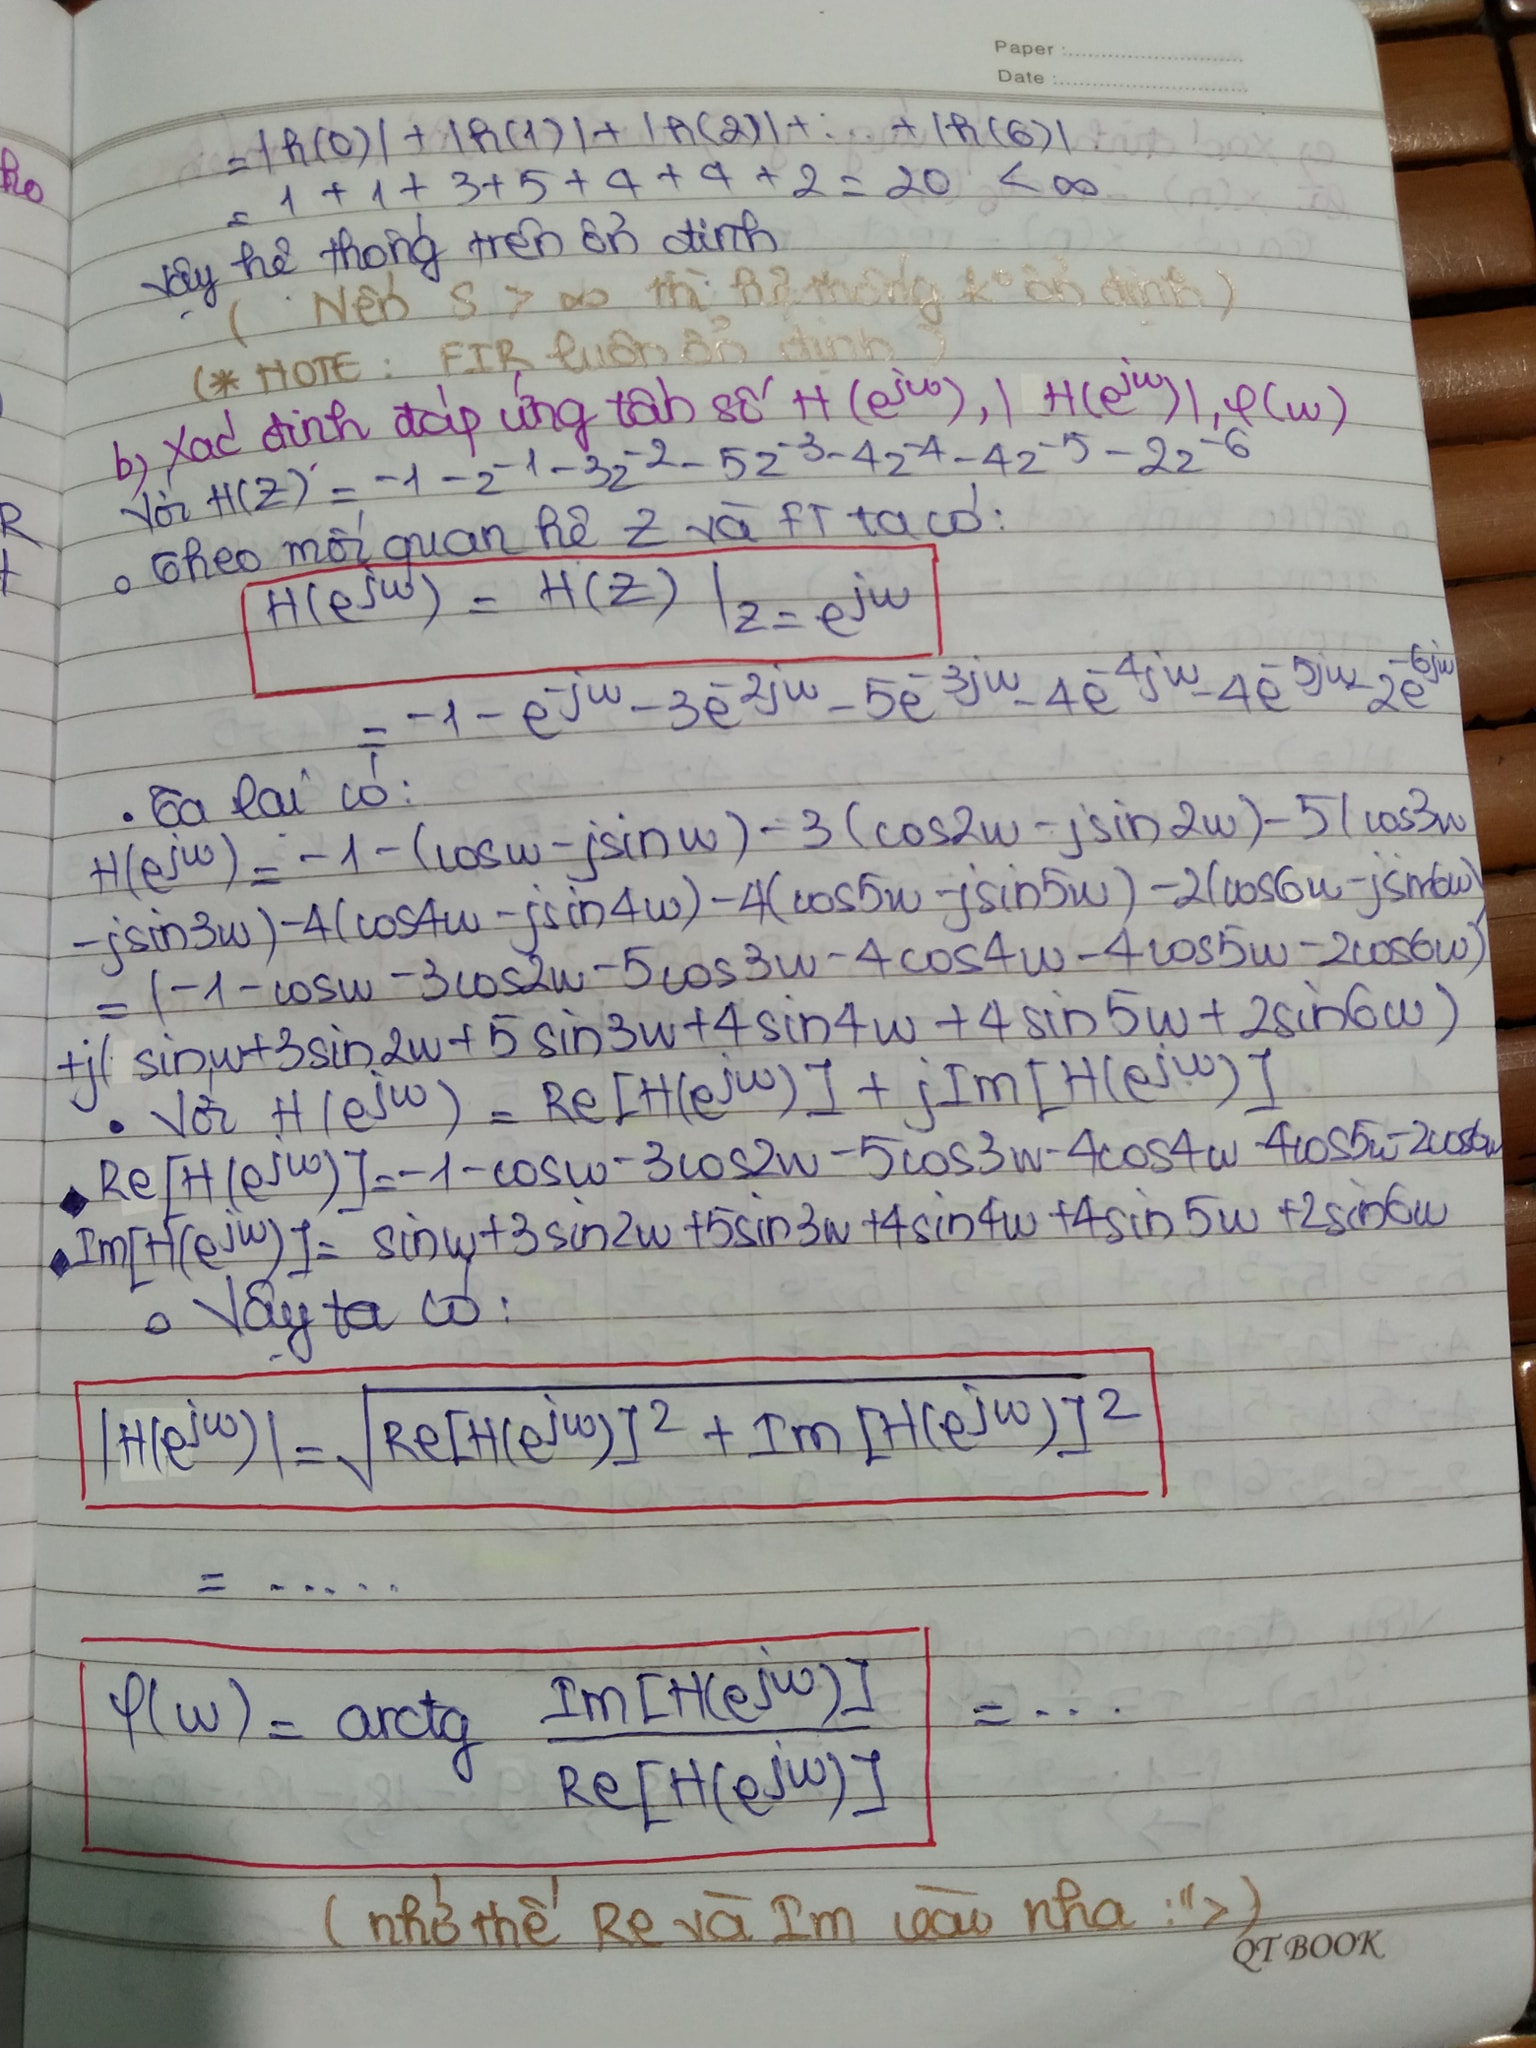 Paper :
Date :
= |h(0)| + |h(1)| + |h(2)| + ... + |h(6)|
= 1 + 1 + 3 + 5 + 4 + 4 + 2 = 20 < ∞
Vậy hệ thống trên ổn định
( Nếu S > ∞ thì hệ thống k° ổn định)
(* NOTE : FIR luôn ổn định )
b) Xác định đáp ứng tần số H(e^jw), |H(e^jw)|, φ(w)
Với H(Z) = -1 - z^-1 - 3z^-2 - 5z^-3 - 4z^-4 - 4z^-5 - 2z^-6
Theo mối quan hệ Z và FT ta có:
H(e^jw) = H(Z) |z = e^jw
= -1 - e^-jw - 3e^-2jw - 5e^-3jw - 4e^-4jw - 4e^-5jw - 2e^-6jw
• Ta lại có:
H(e^jw) = -1 - (cosw - jsinw) - 3(cos2w - jsin2w) - 5(cos3w
- jsin3w) - 4(cos4w - jsin4w) - 4(cos5w - jsin5w) - 2(cos6w - jsin6w)
= (-1 - cosw - 3cos2w - 5cos3w - 4cos4w - 4cos5w - 2cos6w)
+j( sinw + 3sin2w + 5sin3w + 4sin4w + 4sin5w + 2sin6w)
• Với H(e^jw) = Re[H(e^jw)] + jIm[H(e^jw)]
◆ Re[H(e^jw)] = -1 - cosw - 3cos2w - 5cos3w - 4cos4w 4cos5w - 2cos6w
◆ Im[H(e^jw)] = sinw + 3sin2w + 5sin3w + 4sin4w + 4sin5w + 2sin6w
Vậy ta có:
|H(e^jw)| = √(Re[H(e^jw)]² + Im[H(e^jw)]²)
= .....
φ(w) = arctg Im[H(e^jw)] / Re[H(e^jw)] = ...
(nhớ thế Re và Im vào nha :">)
QT BOOK